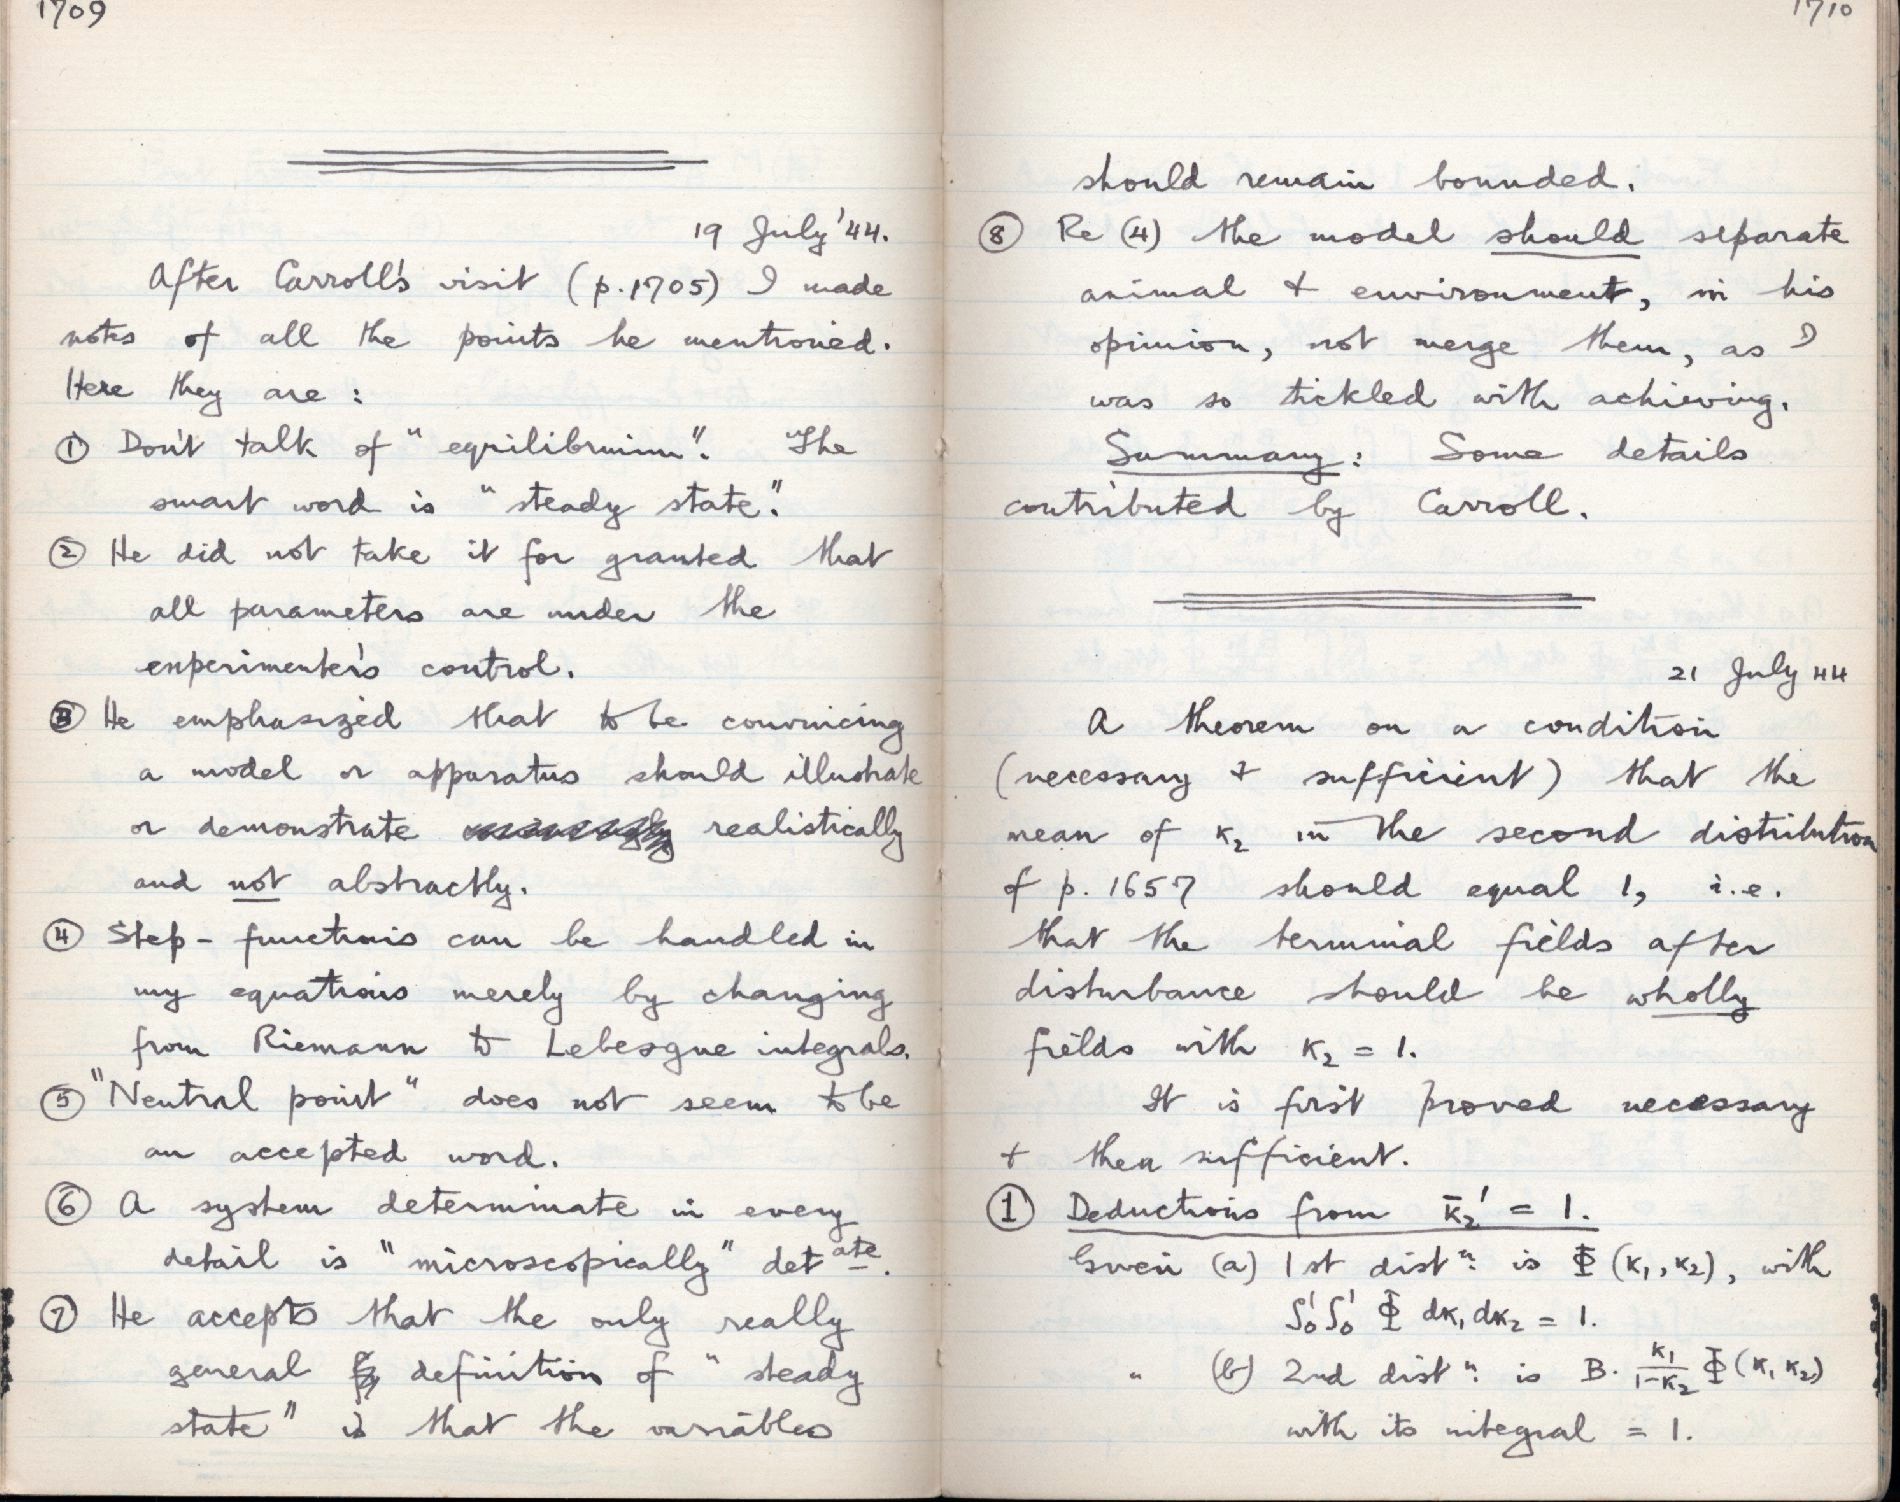 1709
19 July '44.
After Carroll's visit (p. 1705) I made
notes of all the points he mentioned.
Here they are :
① Don't talk of "equilibrium". The
smart word is "steady state".
② He did not take it for granted that
all parameters are under the
experimenter's control.
③ He emphasized that to be convincing
a model or apparatus should illustrate
or demonstrate realistically
and not abstractly.
④ Step-functions can be handled in
my equations merely by changing
from Riemann to Lebesgue integrals.
⑤ "Neutral point" does not seem to be
an accepted word.
⑥ A system determinate in every
detail is "microscopically" det^ate.
⑦ He accepts that the only really
general definition of "steady
state" is that the variables
1710
should remain bounded.
⑧ Re (4) the model should separate
animal & environment, in his
opinion, not merge them, as I
was so tickled with achieving.
Summary : Some details
contributed by Carroll.
21 July 44
A theorem on a condition
(necessary & sufficient) that the
mean of κ₂ in the second distribution
of p. 1657 should equal 1, i.e.
that the terminal fields after
disturbance should be wholly
fields with κ₂ = 1.
It is first proved necessary
& then sufficient.
① Deductions from κ̄₂' = 1.
Given (a) 1st distⁿ: is Φ (κ₁, κ₂), with
∫₀¹∫₀¹ Φ dκ₁ dκ₂ = 1.
" (b) 2nd distⁿ: is B. κ₁/(1-κ₂) Φ(κ₁ κ₂)
with its integral = 1.